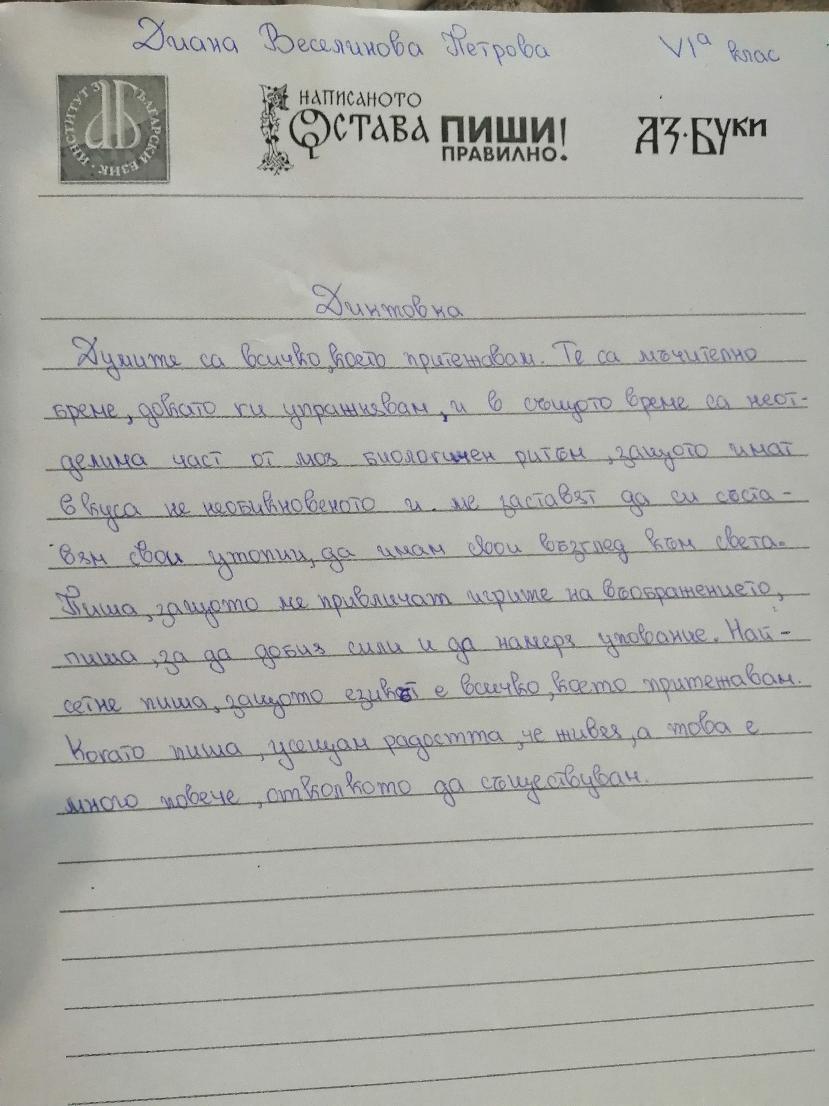 Диана Веселинова Петрова VIа клас
ИНСТИТУТ ЗА БЪЛГАРСКИ ЕЗИК
НАПИСАНОТО
ОСТАВА ПИШИ!
ПРАВИЛНО!
АЗ·БУКИ
Диктовка
Думите са всичко, което притежавам. Те са мъчително
бреме, докато ги упражнявам, и в същото време са неот-
делима част от моя биологичен ритъм, защото имат
вкуса не необикновеното и ме заставят да си съста-
вям свои утопии, да имам свои възглед към света.
Пиша, защото ме привличат игрите на въображението,
пиша, за да добия сили и да намеря упование. Най-
сетне пиша, защото езикът е всичко, което притежавам.
Когато пиша, усещам радостта, че живея, а това е
много повече, отколкото да съществувам.